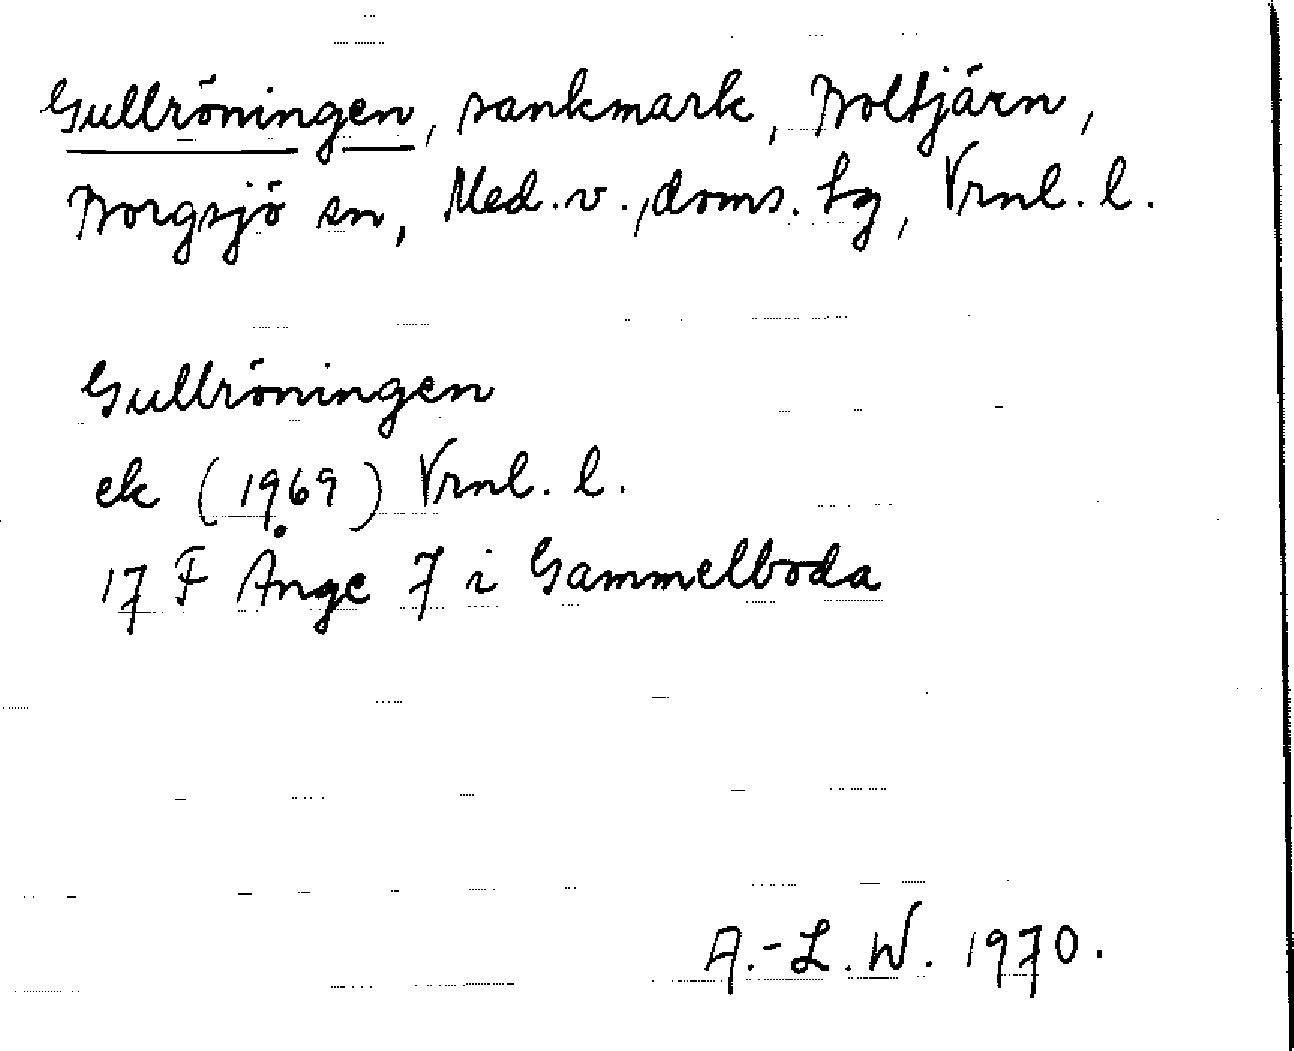 Gullröningen, sankmark, Boltjärn,
Borgsjö sn, Med. v., doms. hg, Vrnl. l.
Gullröningen
ek (1969) Vrnl. l.
17 F Ånge 7 i Gammelboda
A.-L. W. 1970.